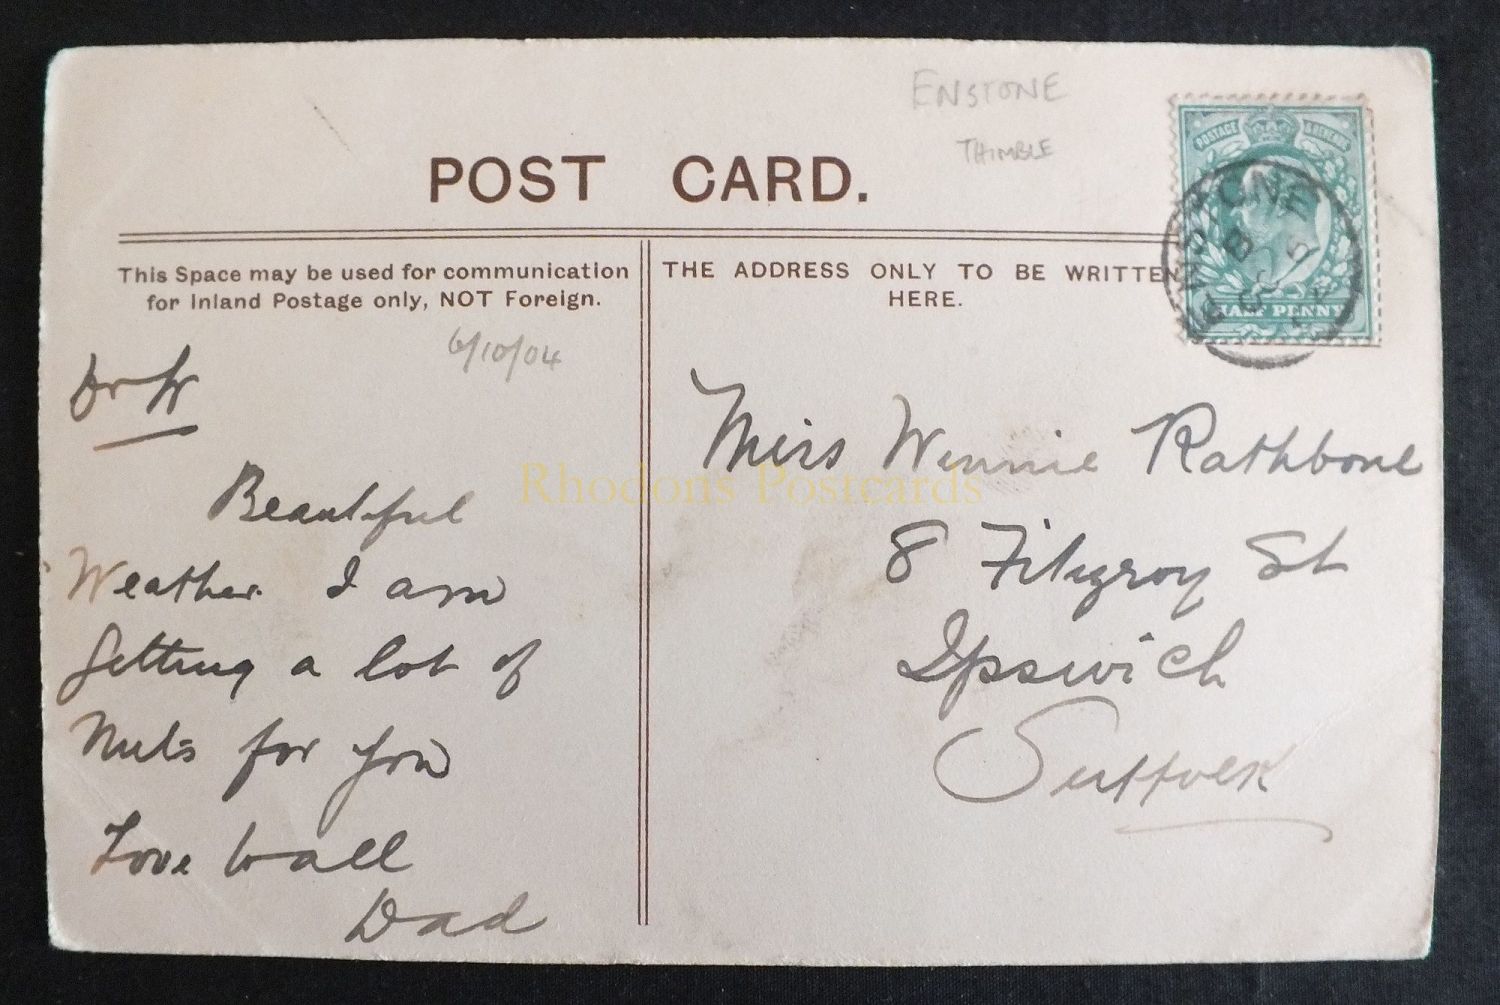 ENSTONE
THIMBLE
POST CARD.
POSTAGE & REVENUE
HALF PENNY
This Space may be used for communication
for Inland Postage only, NOT Foreign.
THE ADDRESS ONLY TO BE WRITTEN
HERE.
6/10/04
Dr W
Beautiful
Weather. I am
getting a lot of
Nuts for you
Love to all
Dad
Miss Winnie Rathbone
8 Fitzgroy St
Ipswich
Suffolk
Rhodons Postcards